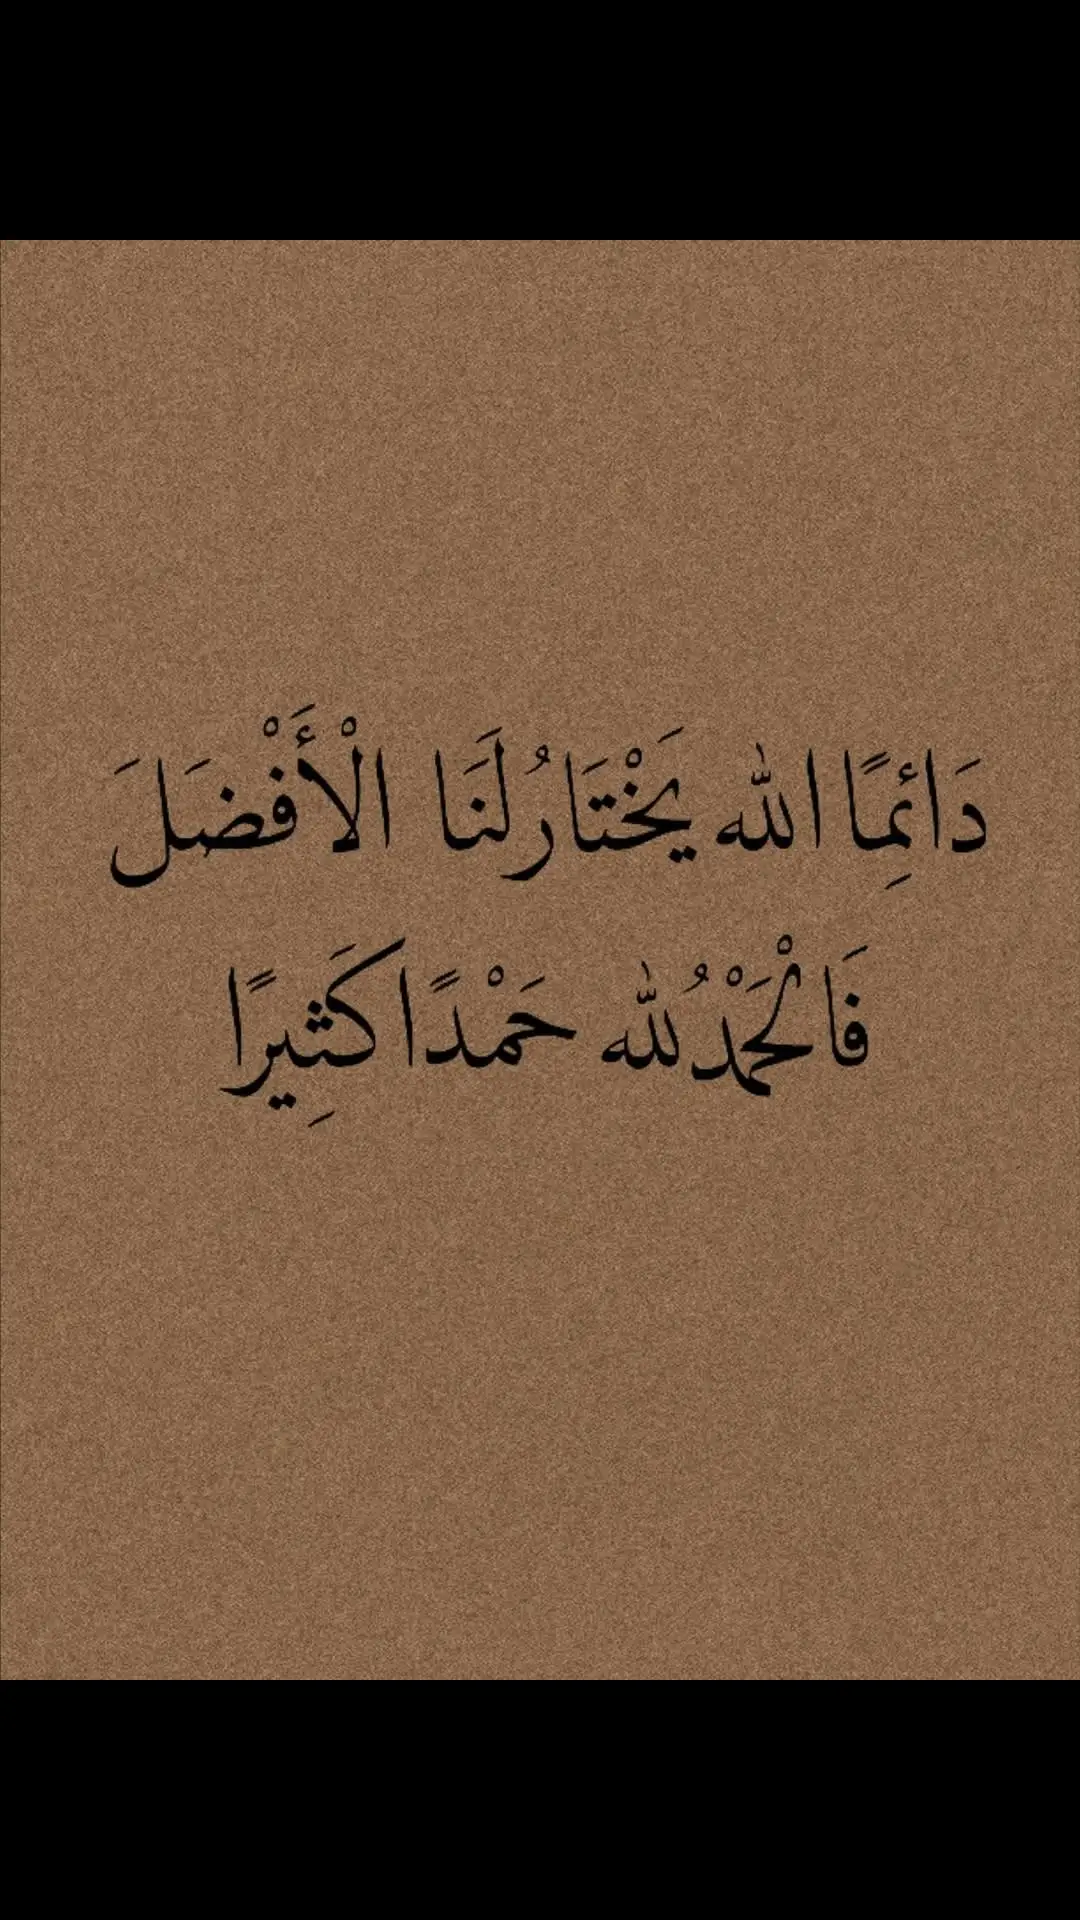 دَائِمًا الله يَخْتَارُ لَنَا الْأَفْضَلَ
فَالْحَمْدُ لله حَمْدًا كَثِيرًا